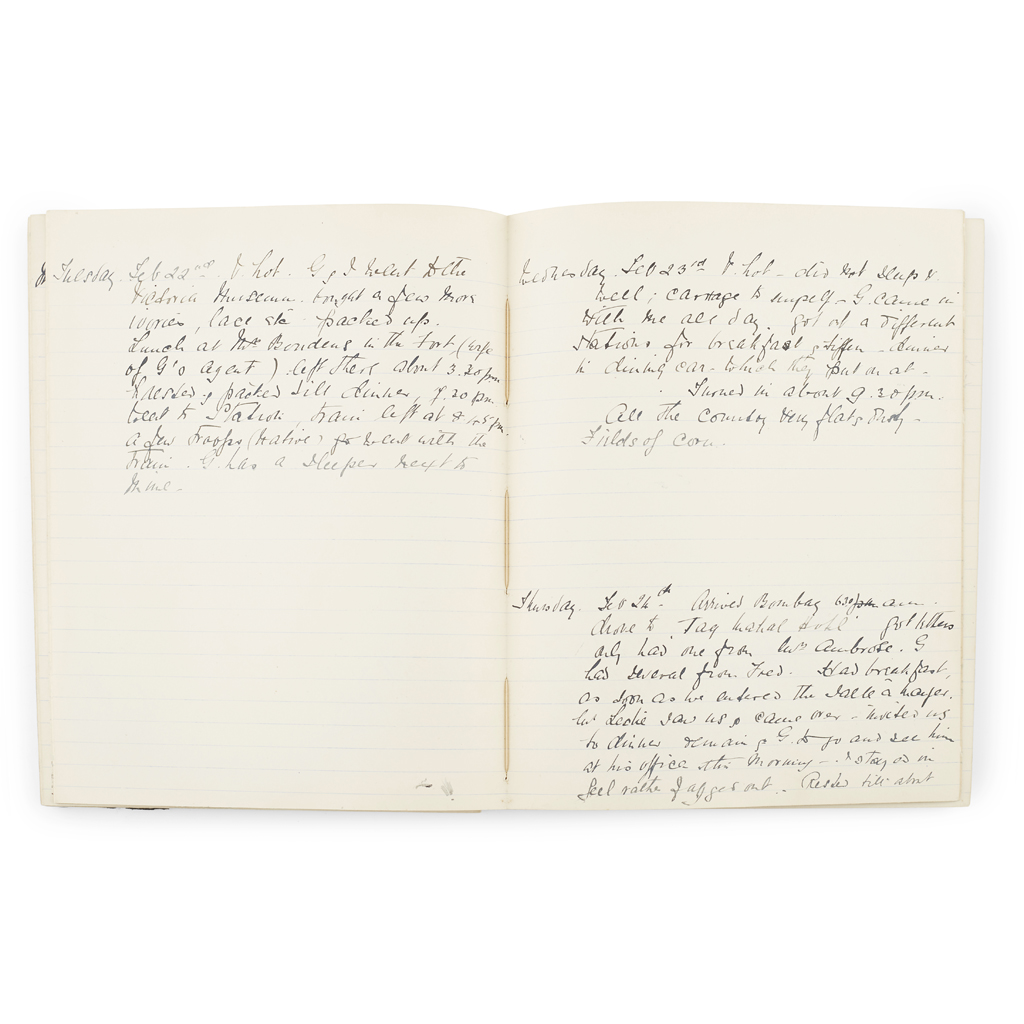 Tuesday. Feb 22nd. V. hot. G & I went to the
Victoria Museum. bought a few more
ivories, lace etc packed up.
Lunch at Mrs in the Fort (wife
of G's agent) left there about 3.30 pm
Rested & packed till dinner, 7.30 pm.
went to Station, train left at
a few Troops (Native) went with the
Train. G. has a sleeper next to
mine -
Wednesday. Feb 23rd V. hot - did not sleep v.
well; carriage to myself - G. came in
with me all day. got out at different
Stations for breakfast & tiffin - dinner
in dining car - which they put on at -
Turned in about 9.30 pm.
All the country very flat & dusty -
Fields of corn.
Thursday. Feb 24th Arrived Bombay 6.30 pm am.
drove to "Taj Mahal Hotel" got letters
only had one from Mrs Ambrose. G
had several from Fred. Had breakfast,
as soon as we entered the Salle à manger.
Mr Leslie saw us & came over - invited us
to dinner & G. to go and see him
at his office this Morning - I stayed in
feel rather fagged out - Rested till about